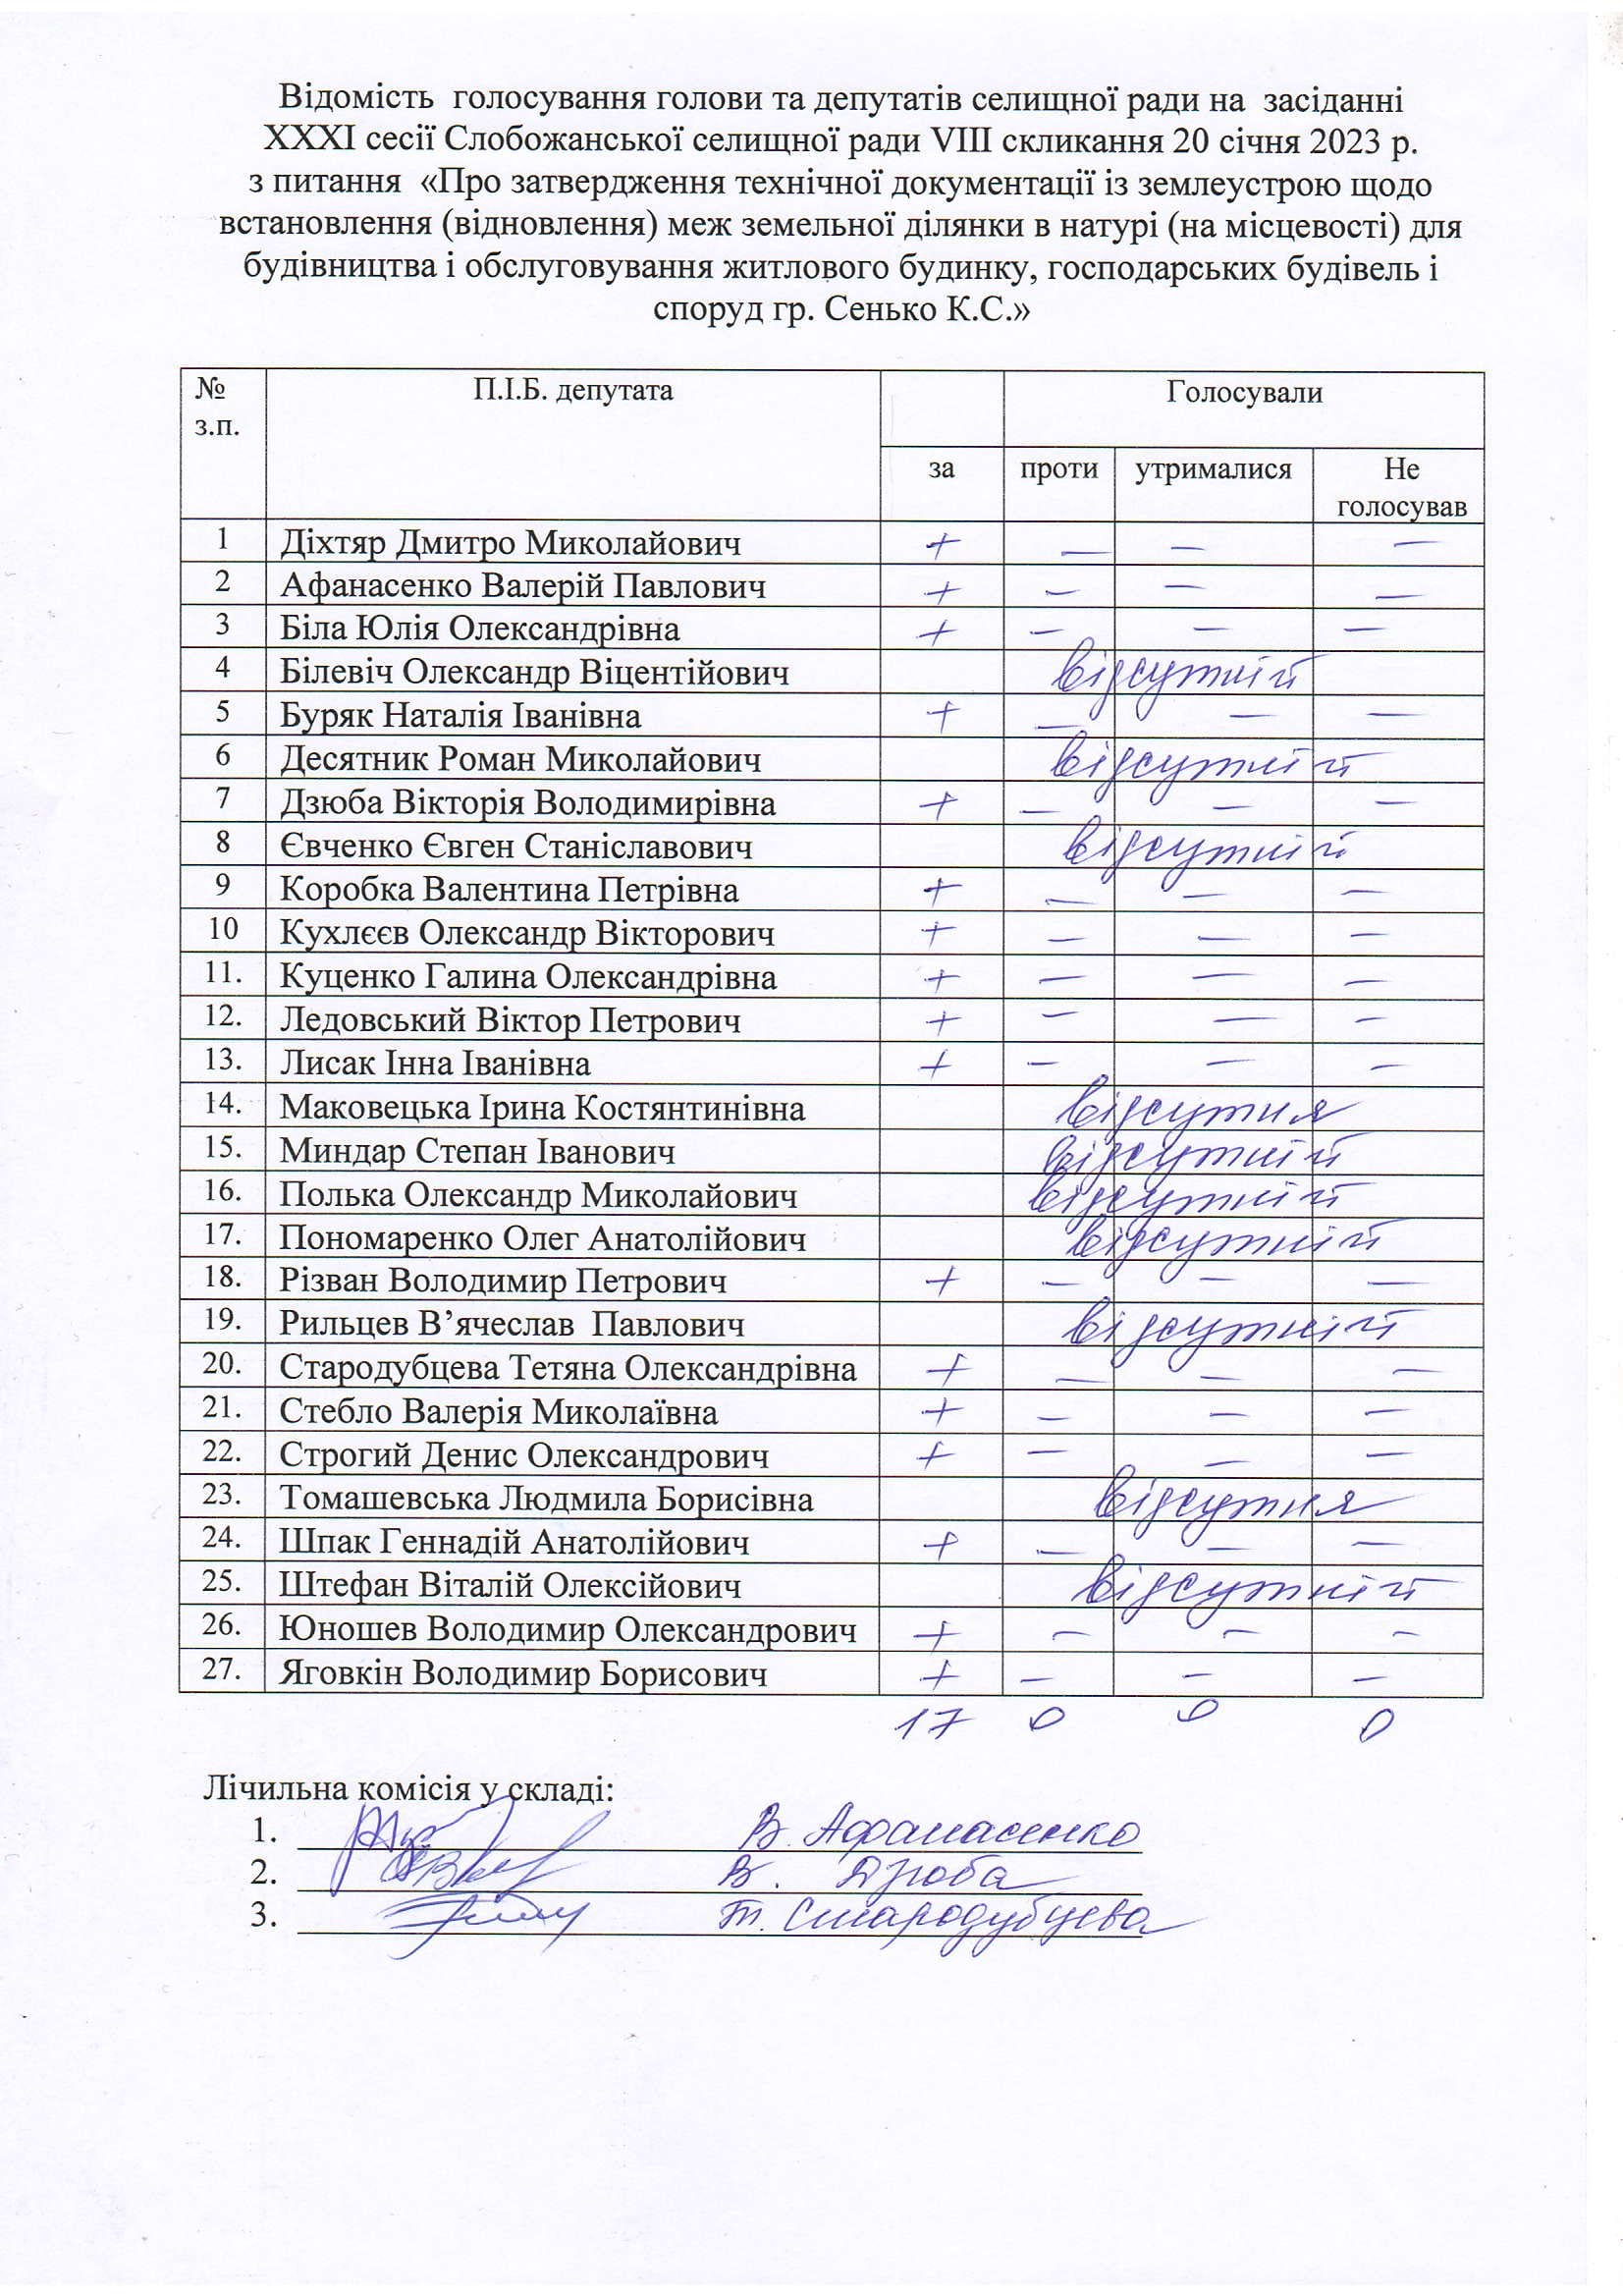 Відомість голосування голови та депутатів селищної ради на засіданні
XXXI сесії Слобожанської селищної ради VIII скликання 20 січня 2023 р.
з питання «Про затвердження технічної документації із землеустрою щодо
встановлення (відновлення) меж земельної ділянки в натурі (на місцевості) для
будівництва і обслуговування житлового будинку, господарських будівель і
споруд гр. Сенько К.С.»
№ з.п. П.І.Б. депутата Голосували
за проти утрималися Не голосував
1 Діхтяр Дмитро Миколайович + — — —
2 Афанасенко Валерій Павлович + — — —
3 Біла Юлія Олександрівна + — — —
4 Білевіч Олександр Віцентійович відсутній
5 Буряк Наталія Іванівна + — — —
6 Десятник Роман Миколайович відсутній
7 Дзюба Вікторія Володимирівна + — — —
8 Євченко Євген Станіславович відсутній
9 Коробка Валентина Петрівна + — — —
10 Кухлєєв Олександр Вікторович + — — —
11. Куценко Галина Олександрівна + — — —
12. Ледовський Віктор Петрович + — — —
13. Лисак Інна Іванівна + — — —
14. Маковецька Ірина Костянтинівна відсутня
15. Миндар Степан Іванович відсутній
16. Полька Олександр Миколайович відсутній
17. Пономаренко Олег Анатолійович відсутній
18. Різван Володимир Петрович + — — —
19. Рильцев В’ячеслав Павлович відсутній
20. Стародубцева Тетяна Олександрівна + — — —
21. Стебло Валерія Миколаївна + — — —
22. Строгий Денис Олександрович + — — —
23. Томашевська Людмила Борисівна відсутня
24. Шпак Геннадій Анатолійович + — — —
25. Штефан Віталій Олексійович відсутній
26. Юношев Володимир Олександрович + — — —
27. Яговкін Володимир Борисович + — — —
17 0 0 0
Лічильна комісія у складі:
1. В. Афанасенко
2. В. Дзюба
3. Т. Стародубцева